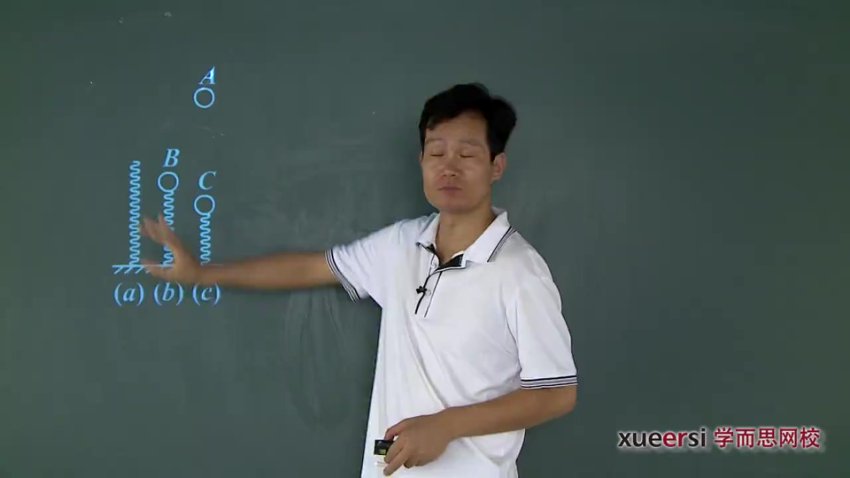 A
B
C
(a) (b) (c)
xueersi 学而思网校